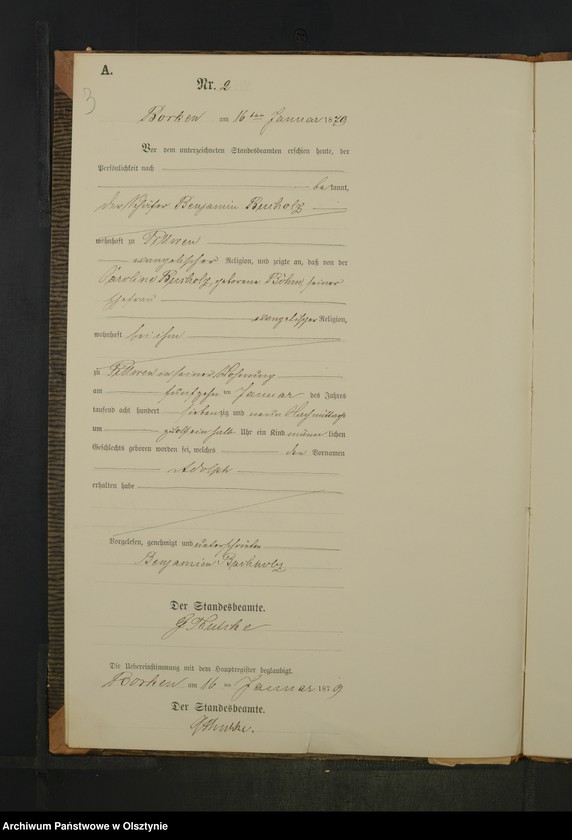 A.
3
Nr. 2
Borken am 16ten Januar 1879
Vor dem unterzeichneten Standesbeamten erschien heute, der
Persönlichkeit nach
bekannt,
der Schäfer Benjamin Buchholz
wohnhaft zu
evangelischer Religion, und zeigte an, daß von der
Caroline Buchholz, geborene Böhm, seiner
Ehefrau
evangelischer Religion,
wohnhaft bei ihm
zu in seiner Wohnung
am fünfzehnten Januar des Jahres
tausend acht hundert siebenzig und neun Nachmittags
um zwölf ein halb Uhr ein Kind männlichen
Geschlechts geboren worden sei, welches den Vornamen
Adolph
erhalten habe
Vorgelesen, genehmigt und unterschrieben
Benjamin Buchholz
Der Standesbeamte.
Die Uebereinstimmung mit dem Hauptregister beglaubigt.
Borken am 16ten Januar 1879
Der Standesbeamte.
Archiwum Państwowe w Olsztynie